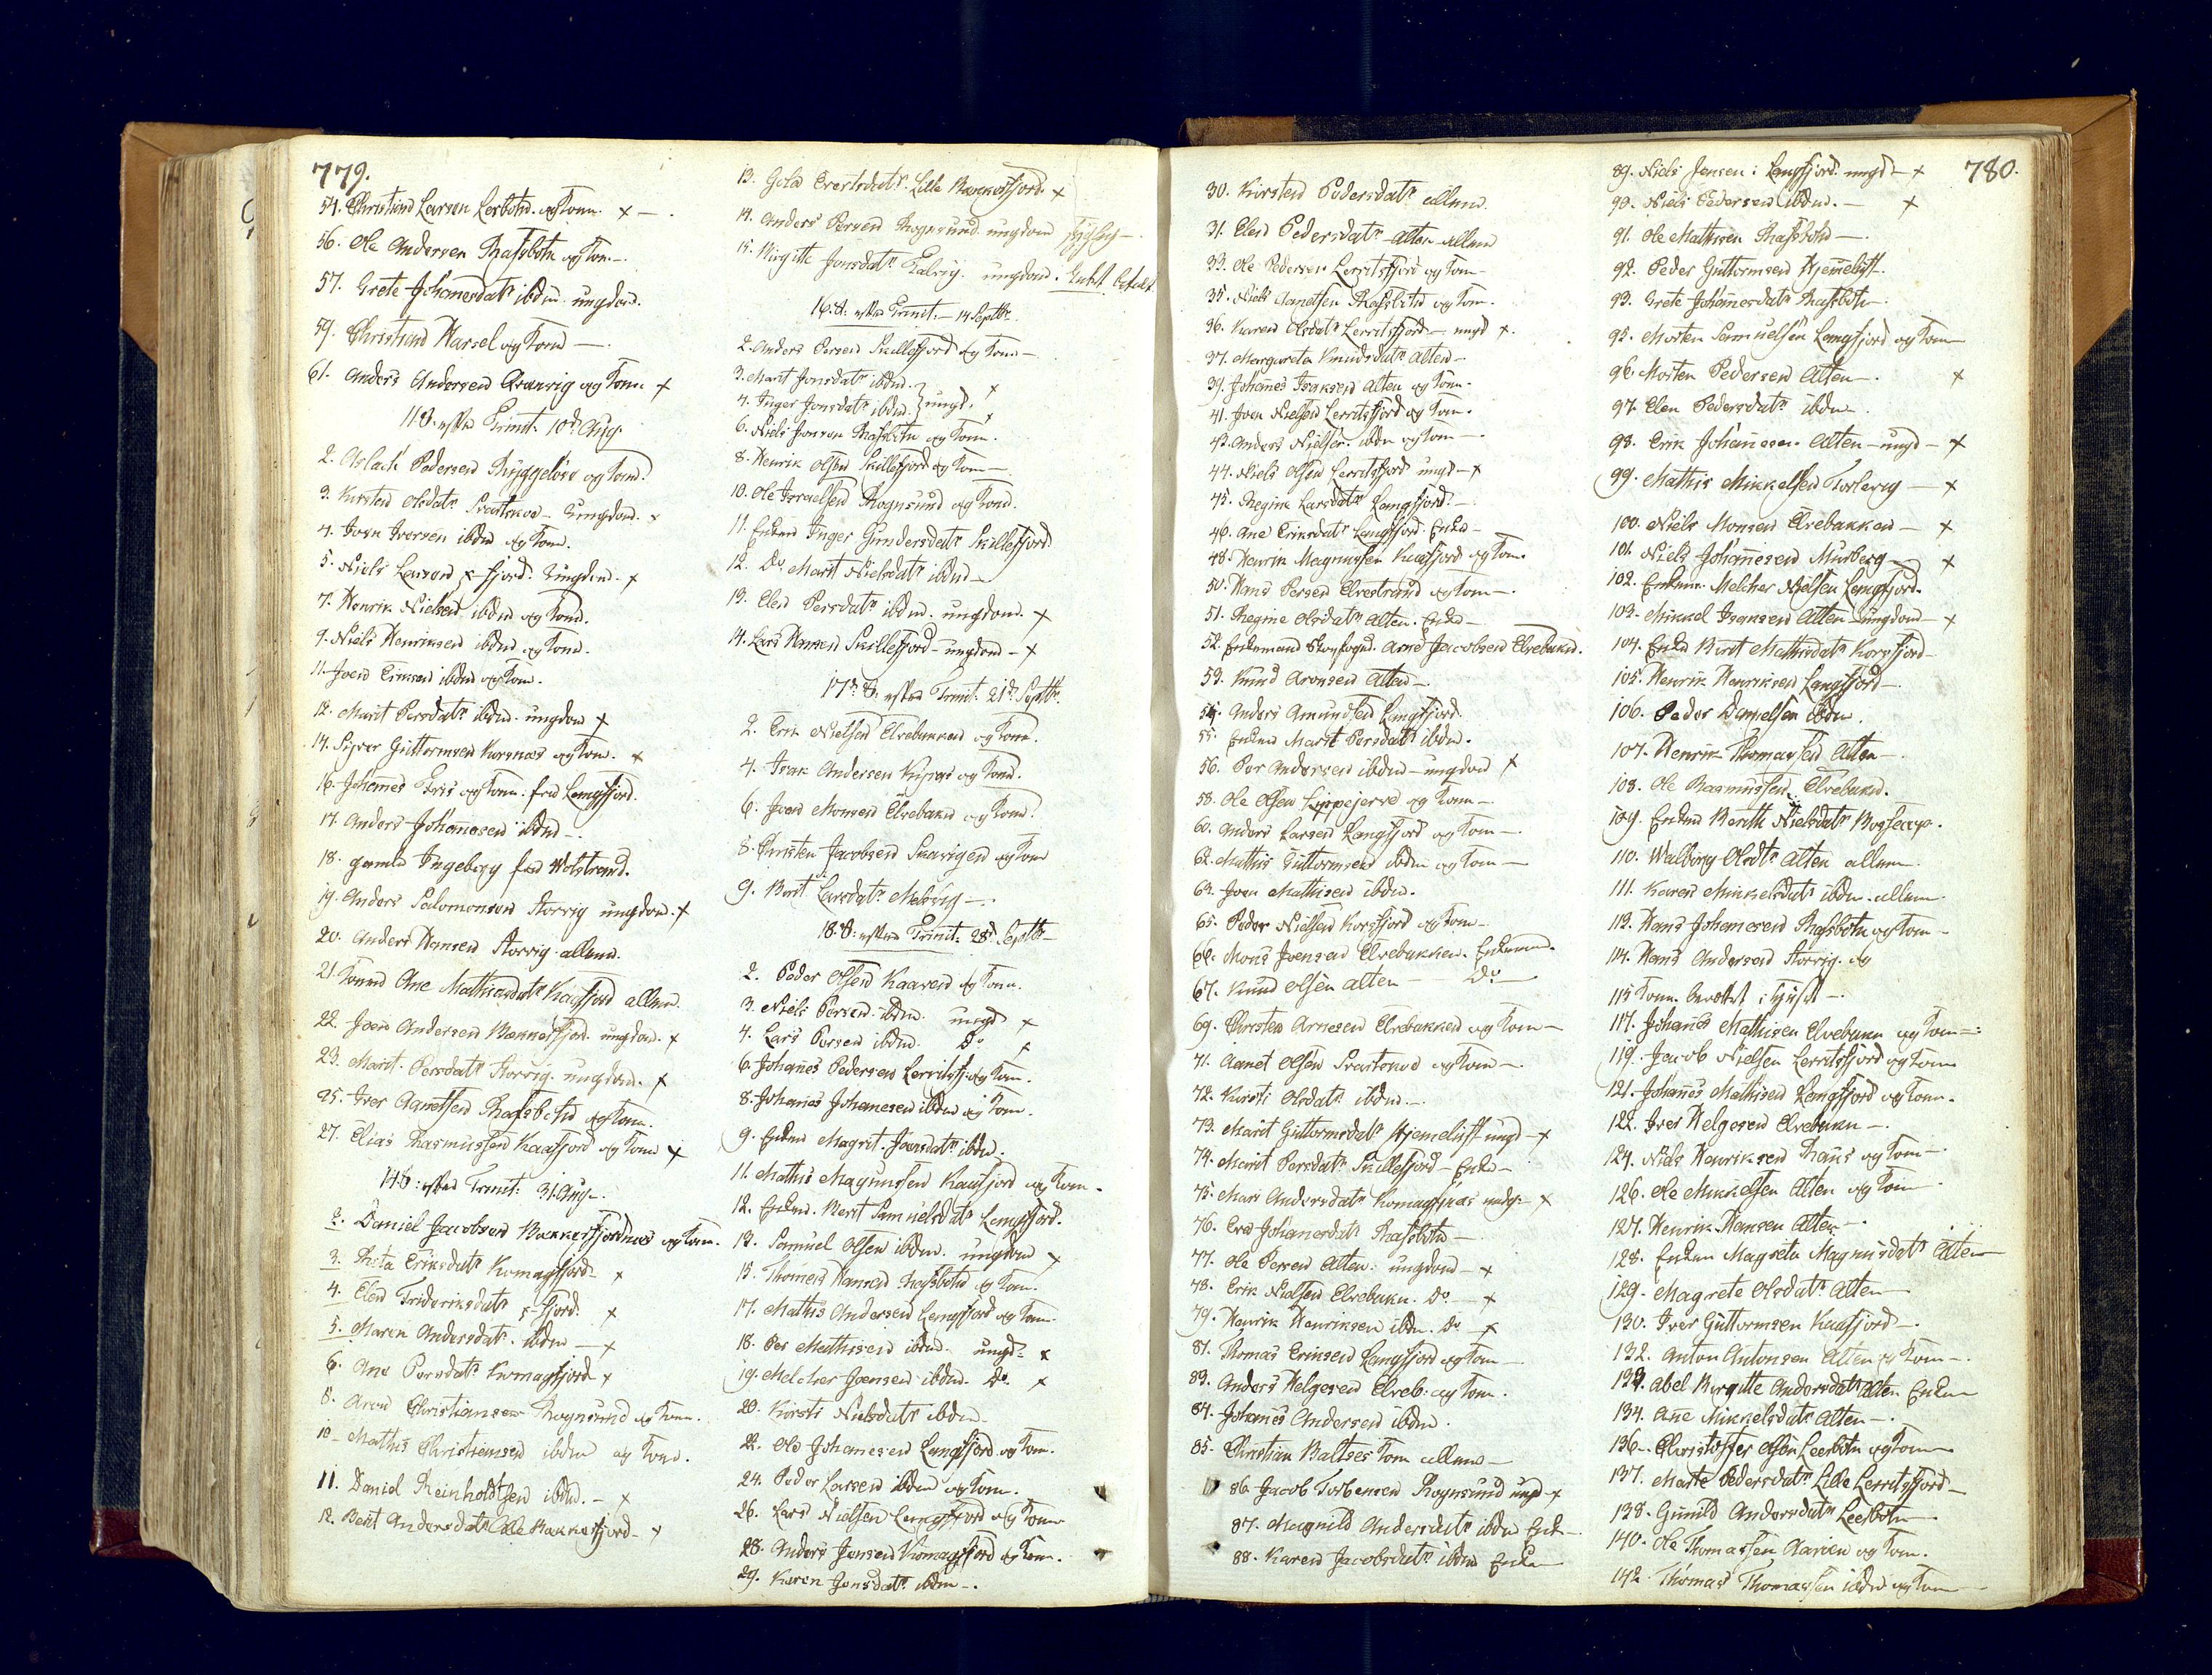 779.
54. Christian Larsen Lerbotn. og Kone. x —
56. Ole Andersen Rafsbotn og Kone —
57. Grete Johanesdatr ibdm ungdom.
59. Christian Harsel og Kone —
61. Anders Andersen og Kone x
11. S. efter Trinit. 10d Aug.
2. Aslach Pedersen og Kone.
3. Kirsten Olsdatr Svartskov — Ungdom. x
4. Iver Iversen ibdm og Kone.
5. Niels Larsen x-fjord. Ungdom. x
7. Henrik Nielsen ibdm og Kone.
9. Niels Henriksen ibdm og Kone.
11. Joen Eriksen ibdm og Kone.
12. Marit Persdatr ibdm. ungdom x
14. Siver Guttormsen Kursnæs og Kone. x
16. Johannes Friis og Kone. fra Langfjord.
17. Anders Johannesen ibdm —
18. gamle Ingeborg fra
19. Anders Salomonsen Storvig ungdom. x
20. Anders Hansen Storvig allene.
21. Konen Ane Mathisdatr Kaafjord allene.
22. Joen Andersen Bækkerfjord. ungdom. x
23. Marit Persdatr Storvig. ungdom. x
25. Iver Aanetsen Rafsbotn og Kone.
27. Elias Rasmussen Kaafjord og Kone x
14 S: efter Trinit: 31. Aug.
2. Daniel Jacobsen Bækkerfjordnæs og Kone.
3. Eriksdatr Komagfjord — x
4. Elen Friderichsdatr x-fjord. x
5. Maren Andersdatr. ibdm — x
6. Ane Persdatr Komagfjord x
8. Aron Christiansen Rognsund og Kone.
10 — Mathis Christiansen ibdm og Kone.
11. Daniel Reinholdtsen ibdm. — x
12. Berit Andersdatr Lille Bækkerfjord — x
13. Evertsdatr. Lille Bækkerfjord. x
14. Anders Persen Rognsund ungdom
15. Birgitte Jonsdatr Talvig. ungdom. betalt
16. S. efter Trinit: — 14 Septbr
2. Anders Persen Skillefjord og Kone —
3. Marit Jonsdatr ibdm. x
4. Inger Jonsdatr ibdm. } ungd. x
6. Niels Jonsen Rafsbotn og Kone.
8. Henrik Olsen Skillefjord og Kone —
10. Ole Israelsen Rognsund og Kone.
11. Enken Inger Gundersdatr Skillefjord
12. Do Marit Nielsdatr ibdm —
13. Elen Persdatr ibdm. ungdom. x
14. Lars Hansen Skillefjord — ungdom — x
17de S: efter Trinit. 21de Septbr.
2. Erik Nielsen Elvebakken og Kone.
4. Isak Andersen og Kone.
6. Joen Monsen Elvebakn og Kone.
8. Christen Jacobsen og Kone
9. Berit Larsdatr Melsvig —
18. S: efter Trinit: 28d Septbr —
2. Peder Olsen Kaaven og Kone.
3. Niels Persen ibdm. ungd x
4. Lars Persen ibdm. Do x
6. Johannes Pedersen Lerritsfj. og Kone.
8. Johannes Johannesen ibdm og Kone.
9. Enken Magrit Joensdatr ibdm.
11. Mathis Magnussen Kaafjord og Kone.
12. Enken. Berit Samuelsdatr Langfjord.
13. Samuel Olsen ibdm. ungdom x
15. Thomas Hansen Rafsbotn og Kone.
17. Mathis Andersen Langfjord og Kone.
18. Per Mathisen ibdm. ungd: x
19. Melcher Joensen ibdm. Do x
20. Kirsti Nielsdatr ibdm —
22. Ole Johannesen Langfjord og Kone.
24. Peder Larsen ibdm og Kone.
26. Lars Nielsen Langfjord og Kone
28. Anders Jensen Komagfjord og Kone.
29. Karen Jensdatr ibdm —.
780.
30. Kirsten Pedersdatr allene.
31. Elen Pedersdatr Alten allene
33. Ole Pedersen Lerritsfjord og Kone —
35. Niels Aanetsen Rafsbotn og Kone.
36. Karen Olsdatr Lerritsfjord — ungd x.
37. Margareta Knudsdatr Alten —
39. Johannes Isaksen Alten og Kone.
41. Joen Nielsen Lerritsfjord og Kone.
43. Anders Nielsen ibdm og Kone —
44. Niels Olsen Lerritsfjord ungd — x
45. Regine Larsdatr Langfjord. —
46. Ane Eriksdatr Langfjord. Enke —
48. Henrik Magnussen Kaafjord og Kone.
50. Hans Persen Elvestrand og Kone —
51. Regine Olsdatr Alten. Enke —
52. Enkemand Skovfoged. Arne Jacobsen Elvebakn.
53. Knud Aronsen Alten —
54. Anders Amundsen Langfjord.
55. Enken Marit Persdatr ibdm.
56. Per Andersen ibdm — ungdom x
58. Ole Olsen og Kone —
60. Anders Larsen Langfjord og Kone —
62. Mathis Guttormsen ibdm og Kone —
63. Joen Mathisen ibdm.
65. Peder Nielsen Korsfjord og Kone —
66. Mons Joensen Elvebakken. Enkemand.
67. Knud Olsen Alten — Do —
69. Christen Arnesen Elvebakken og Kone —
71. Aanet Olsen Svartskov og Kone —
72. Kirsti Olsdatr ibdm. —
73. Marit Guttormsdatr Hjemeluft ungd — x
74. Marit Persdatr Skillefjord — Enke —
75. Mari Andersdatr Komagfnæs ungd — x
76. Eva Johanesdatr Rafsbotn —
77. Ole Persen Alten. ungdom — x
78. Erik Nielsen Elvebakn. Do — x
79. Henrik Henriksen ibdm. Do x
81. Thomas Eriksen Langfjord og Kone —
83. Anders Helgesen Elveb. og Kone.
84. Johannes Andersen ibdm.
85. Christian Baltses Kone allene —
86. Jacob Torbensen Rognsund ungd x
87. Magnild Andersdatr ibdm Enke —
88. Karen Jacobsdatr ibdm Enke
89. Niels Jensen i Langfjord. ungd — x
90. Niels Pedersen ibdm. — x
91. Ole Mathisen Rafsbotn —.
92. Peder Guttormsen Hjemeluft.
93. Grete Johannesdatr Rafsbotn.
95. Morten Samuelsen Langfjord og Kone
96. Morten Pedersen Alten —. x
97. Elen Pedersdatr ibdm.
98. Erik Johannesen Alten — ungd — x
99. Mathis Mikkelsen — x
100. Niels Monsen Elvebakken — x
101. Niels Johannesen Murberg — x
102. Enkem. Melcher Nielsen Langfjord.
103. Mikkel Isaksen Alten — ungdom — x
104. Enke Birit Mathisdatr Korsfjord —
105. Henrik Henriksen Langfjord —
106. Peder Danielsen ibdm.
107. Henrik Thomassen Alten —
108. Ole Rasmussen Elvebakn.
109. Enken Berith Nielsdatr Bossecop.
110. Walborg Olsdtr Alten allene.
111. Karen Mikkelsdatr ibdm. allene
113. Hans Johannesen Rafsbotn og Kone —
114. Hans Andersen Storvig. og
115 Kone. berettet i —.
117. Johannes Mathisen Elvebakn og Kone —:
119. Jacob Nielsen Lerritsfjord og Kone
121. Johannes Mathisen Langfjord og Kone.
122. Iver Helgesen Elvebakn —.
124. Niels Henriksen og Kone —
126. Ole Mikkelsen Alten og Kone
127. Henrik Hansen Alten —.
128. Enken Magreta Magnusdatr Alten —
129. Magrete Olsdatr Alten —
130. Iver Guttormsen Kaafjord —.
132. Anton Antonsen Alten og Kone —.
133. Abel Birgitte Andersdatr Alten Enke
134. Ane Mikkelsdatr Alten —.
136. Christoffer Olsen Leerbotn og Kone
137. Marte Pedersdatr Lille Lerritsfjord —
138. Gunild Andersdatr Leerbotn —
140. Ole Thomassen Aarøen og Kone.
142. Thomas Thomassen ibdm og Kone